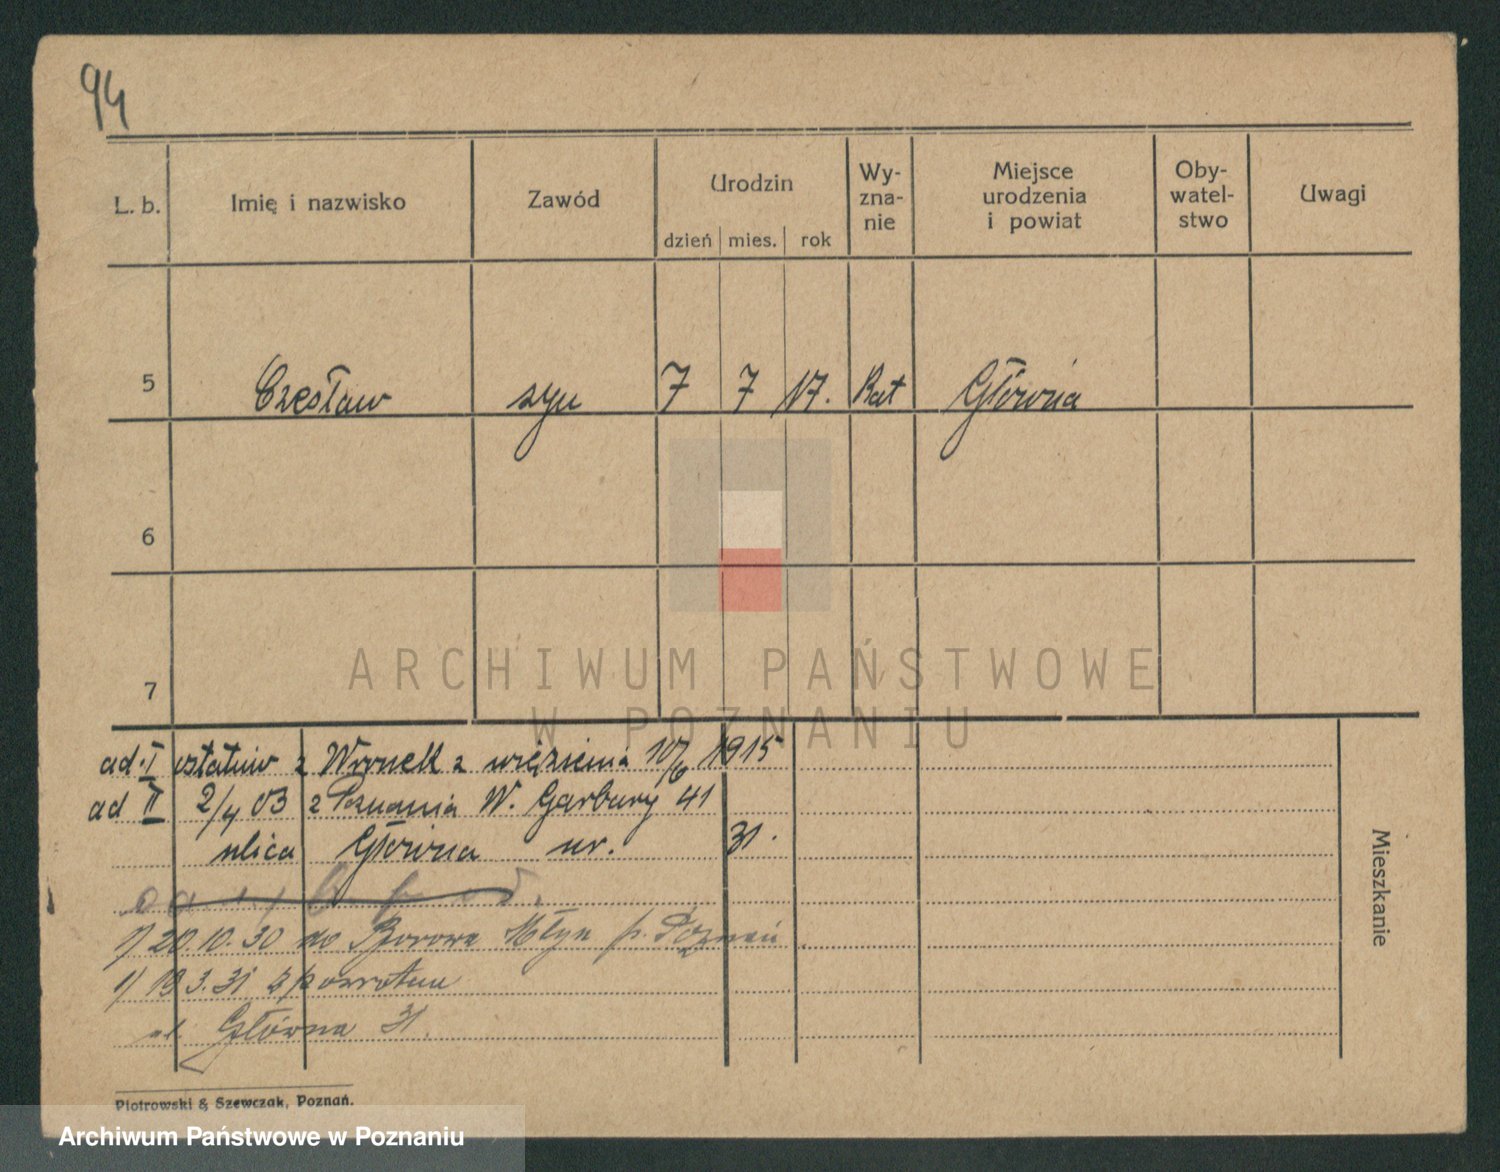 94
L. b. Imię i nazwisko Zawód Urodzin dzień mies. rok Wy-zna-nie Miejsce urodzenia i powiat Oby-watel-stwo Uwagi
5 Czesław syn 7 7 17. Kat Główna
6
7
ARCHIWUM PAŃSTWOWE
W POZNANIU
ad. I ostatnio z Wronek z więzienia 10/6 1915
ad II 2/4 03 z Poznania W. Garbary 41
ulica Główna nr. 31.
1) 20.10.30 do Borowy Młyn p. Poznań
1) 19.3.31 z powrotem
ul. Główna 31.
Mieszkanie
Piotrowski & Szewczak, Poznań.
Archiwum Państwowe w Poznaniu